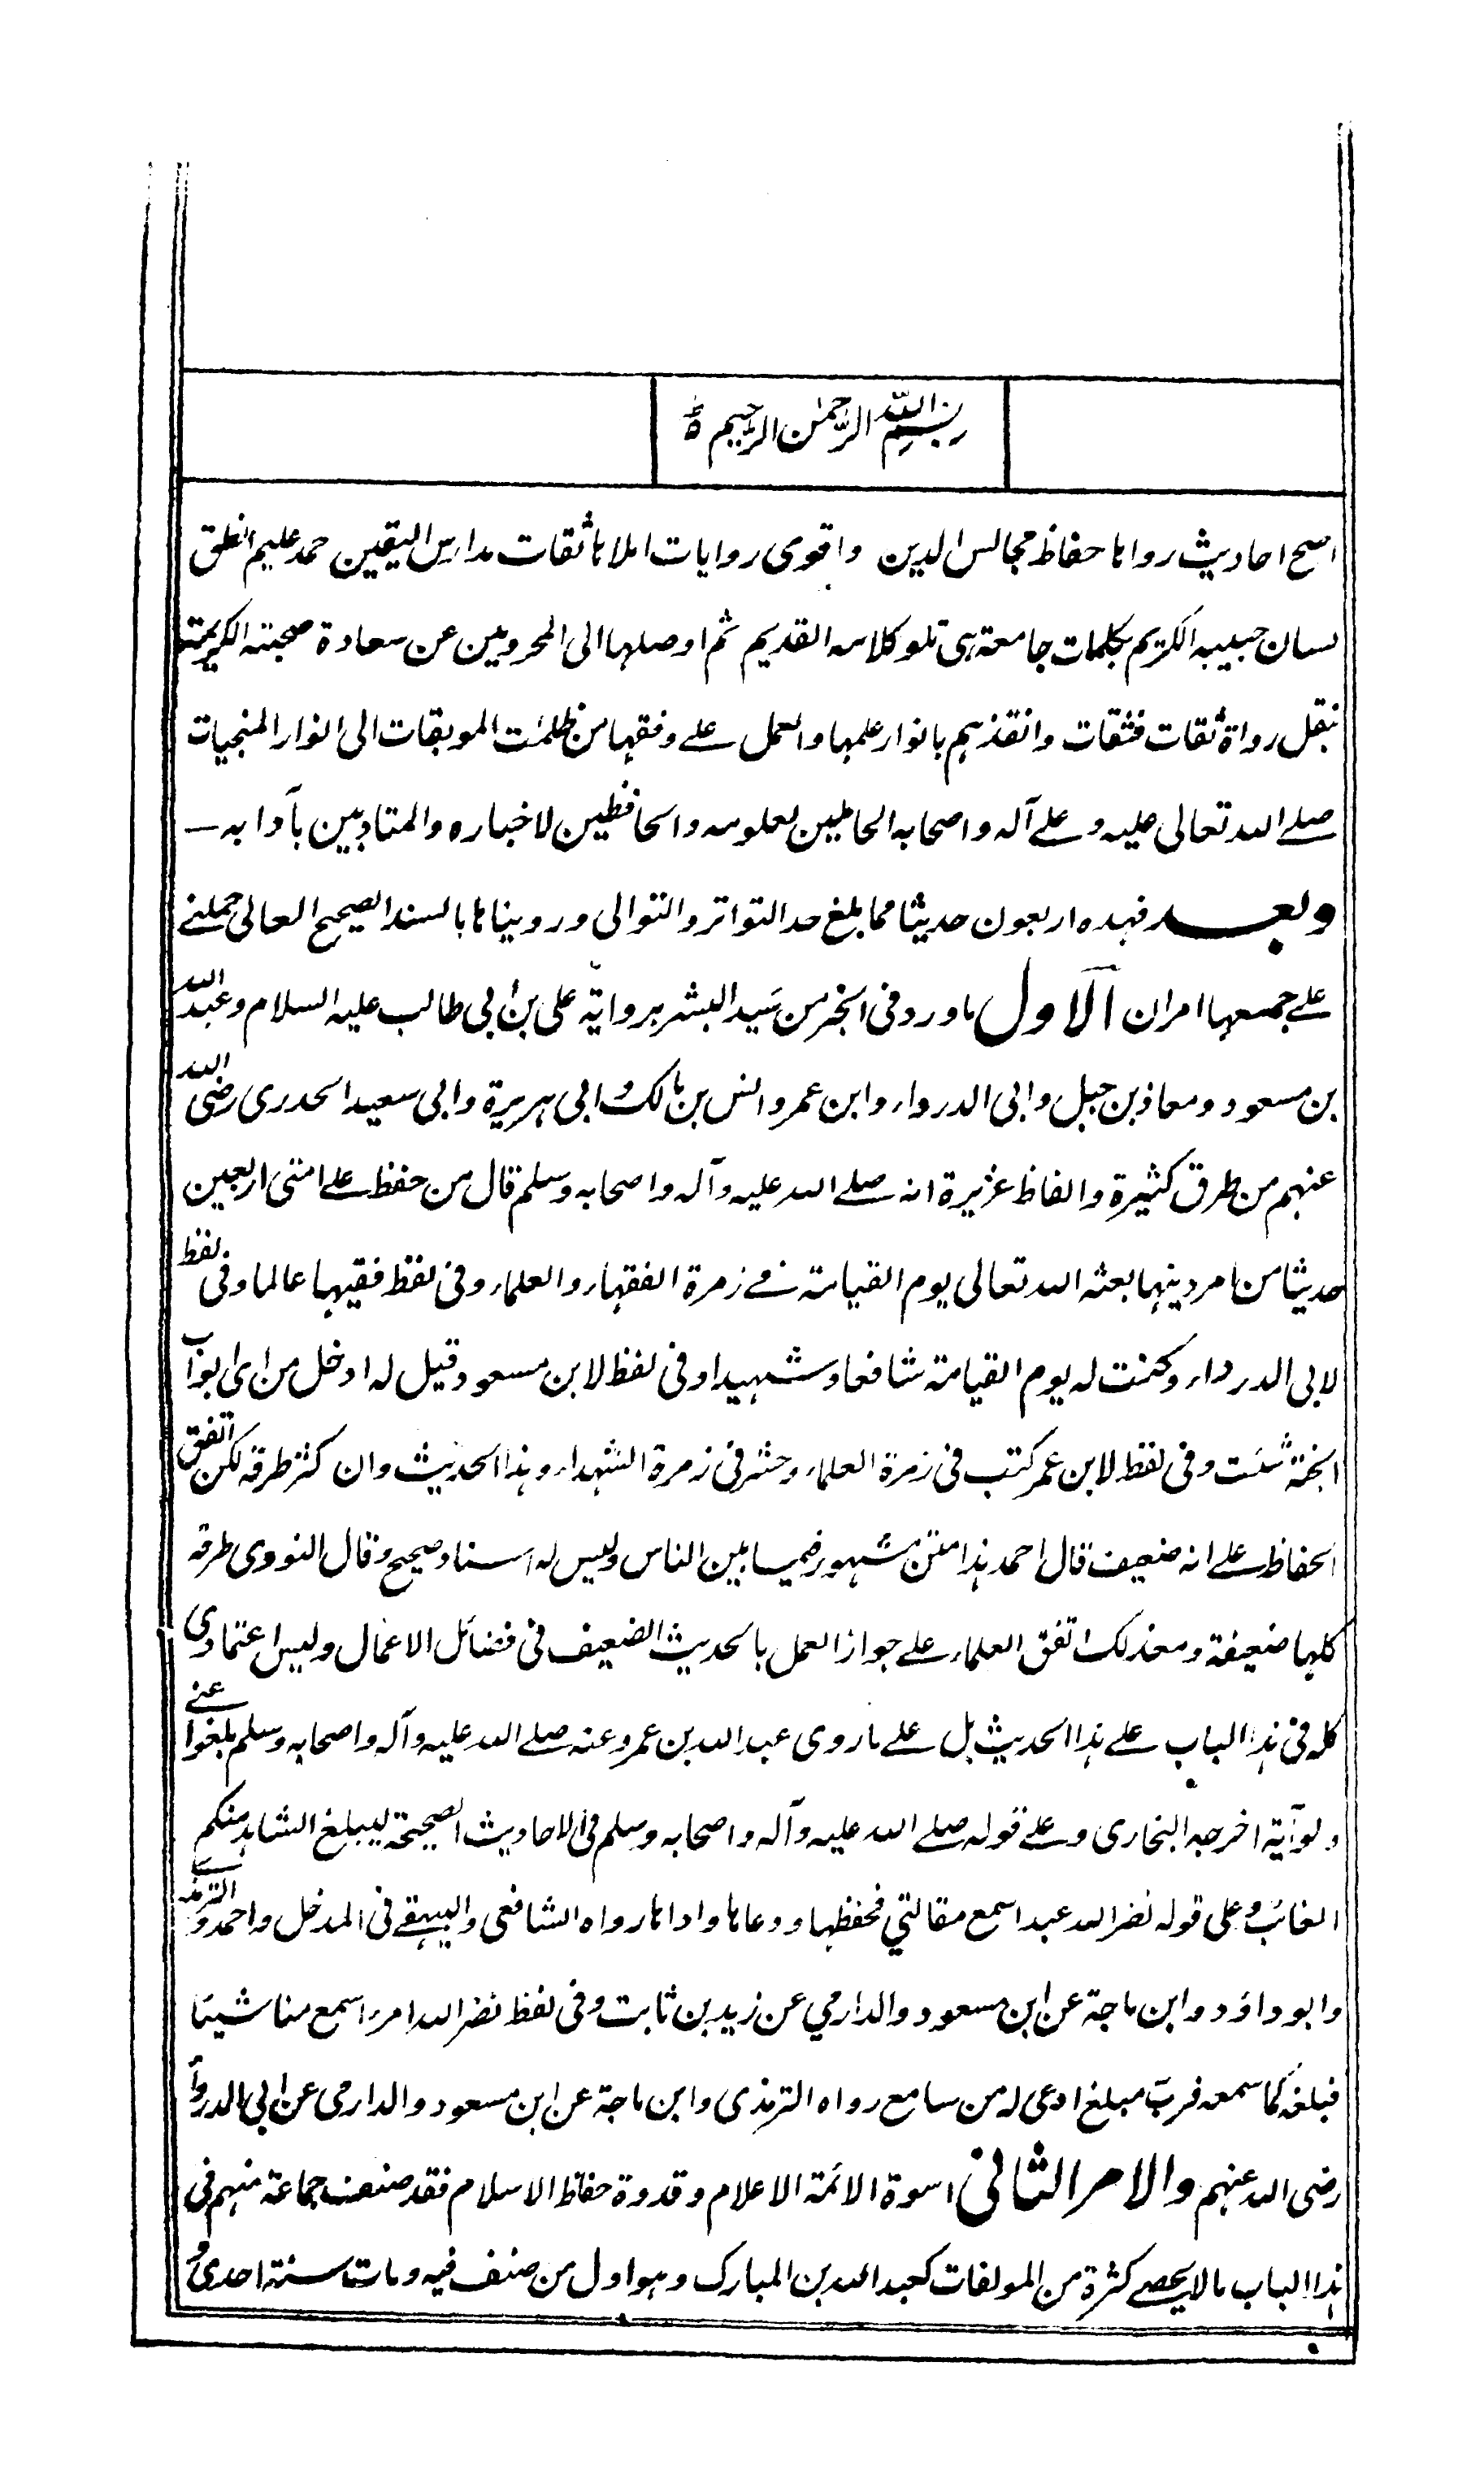 بسم الله الرحمن الرحيم
اصح احاديث رواها حفاظ مجالس الدين واقوى روايات املاها ثقات مدارس اليقين حمد عليم انطق
لسان حبيبه الكريم بكلمات جامعة هى تلو كلامه القديم ثم اوصلها الى المحرومين عن سعادة صحبته الكريمة
بنقل رواة ثقات فثقات وانقذهم بانوار علمها والعمل على وفقها من ظلمات الموبقات الى انوار المنجيات
صلى الله تعالى عليه وعلى آله واصحابه الحاملين لعلومه والحافظين لاخباره والمتادبين بآدابه ــ
وبعد فهذه اربعون حديثا مما بلغ حد التواتر والتوالى ورويناها بالسند الصحيح العالى حملنى
على جمعها امران الاول ما ورد فى الخبر من سيد البشر برواية على بن ابى طالب عليه السلام وعبد الله
بن مسعود ومعاذ بن جبل وابى الدرداء وابن عمر وانس بن مالك وابى هريرة وابى سعيد الخدرى رضى الله
عنهم من طرق كثيرة والفاظ غزيرة انه صلى الله عليه وآله واصحابه وسلم قال من حفظ على امتى اربعين
حديثا من امر دينها بعثه الله تعالى يوم القيامة فى زمرة الفقهاء والعلماء وفى لفظ فقيها عالما وفى لفظ
لابى الدرداء وكنت له يوم القيامة شافعا وشهيدا وفى لفظ لابن مسعود قيل له ادخل من اى ابواب
الجنة شئت وفى لفظ لابن عمر كتب فى زمرة العلماء وحشر فى زمرة الشهداء وهذا الحديث وان كثر طرقه لكن اتفق
الحفاظ على انه ضعيف قال احمد هذا متن مشهور فيما بين الناس وليس له اسناد صحيح وقال النووى طرقه
كلها ضعيفة ومعذلك اتفق العلماء على جواز العمل بالحديث الضعيف فى فضائل الاعمال وليس اعتمادى
كله فى هذا الباب على هذا الحديث بل على ما روى عبد الله بن عمرو عنه صلى الله عليه وآله واصحابه وسلم بلغوا عنى
ولو آية اخرجه البخارى وعلى قوله صلى الله عليه وآله واصحابه وسلم فى الاحاديث الصحيحة ليبلغ الشاهد منكم
الغائب وعلى قوله نضر الله عبدا سمع مقالتي فحفظها ووعاها واداها رواه الشافعى والبيهقى فى المدخل واحمد والترمذى
وابو داؤد وابن ماجة عن ابن مسعود والدارمي عن زيد بن ثابت وفى لفظ نضر الله امرء اسمع منا شيئا
فبلغه كما سمعه فرب مبلغ اوعى له من سامع رواه الترمذى وابن ماجة عن ابن مسعود والدارمى عن ابى الدرداء
رضى الله عنهم والامر الثانى اسوة الائمة الاعلام وقدوة حفاظ الاسلام فقد صنف جماعة منهم فى
هذا الباب مالا يحصى كثرة من المولفات كعبد الله بن المبارك وهو اول من صنف فيه ومات سنة احدى و